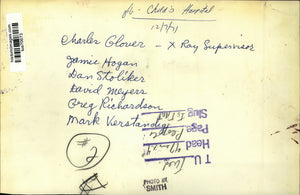 Child's Hospital
12/7/71
Charles Glover - X Ray Supervisor
Jamie Hogan
Dan Stoliker
David Meyers
Greg Richardson
Mark Verstandig
T U
Head
Page
Slug
PHOTO BY
SMITH